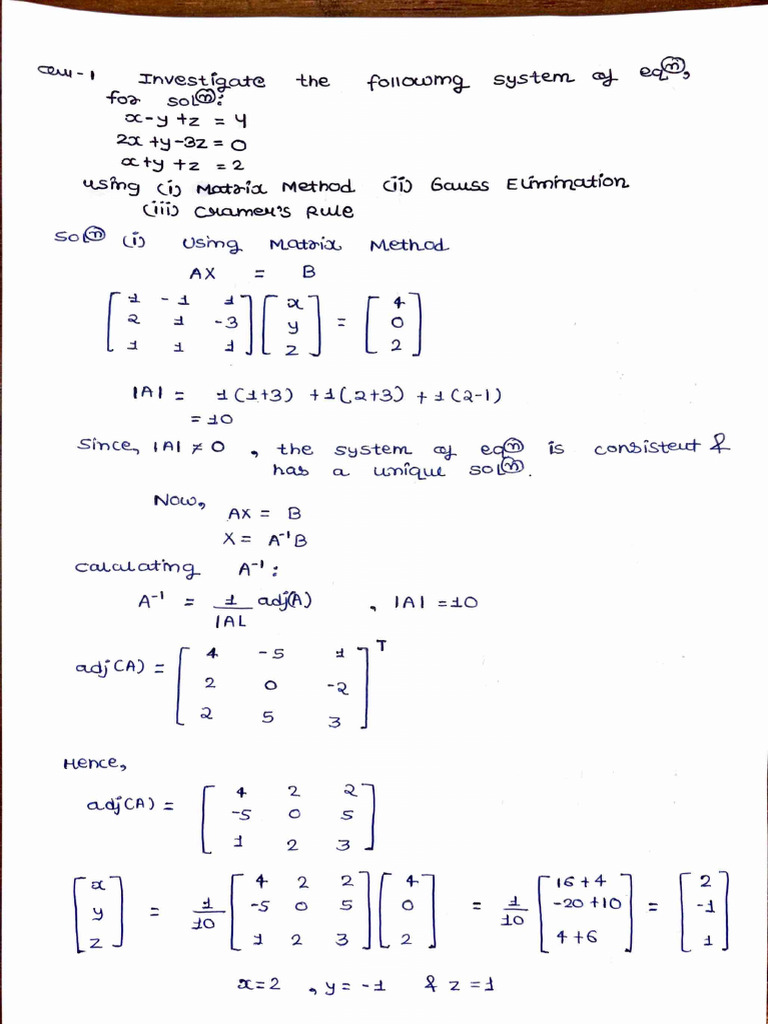 Que-1 Investigate the following system of eqⓝ,
for solⓝ:
x-y+z = 4
2x+y-3z=0
x+y+z = 2
using (i) Matrix Method (ii) Gauss Elimination
(iii) Cramer's Rule
Solⓝ (i) Using Matrix Method
AX = B
[1 -1 1; 2 1 -3; 1 1 1] [x; y; z] = [4; 0; 2]
|A| = 1(1+3) +1(2+3) + 1(2-1)
= 10
Since, |A| ≠ 0, the system of eqⓝ is consistent &
has a unique solⓝ.
Now,
AX = B
X = A⁻¹B
Calculating A⁻¹:
A⁻¹ = 1/|A| adj(A), |A| = 10
adj(A) = [4 -5 1; 2 0 -2; 2 5 3]ᵀ
Hence,
adj(A) = [4 2 2; -5 0 5; 1 2 3]
[x; y; z] = 1/10 [4 2 2; -5 0 5; 1 2 3] [4; 0; 2] = 1/10 [16+4; -20+10; 4+6] = [2; -1; 1]
x=2, y=-1 & z=1